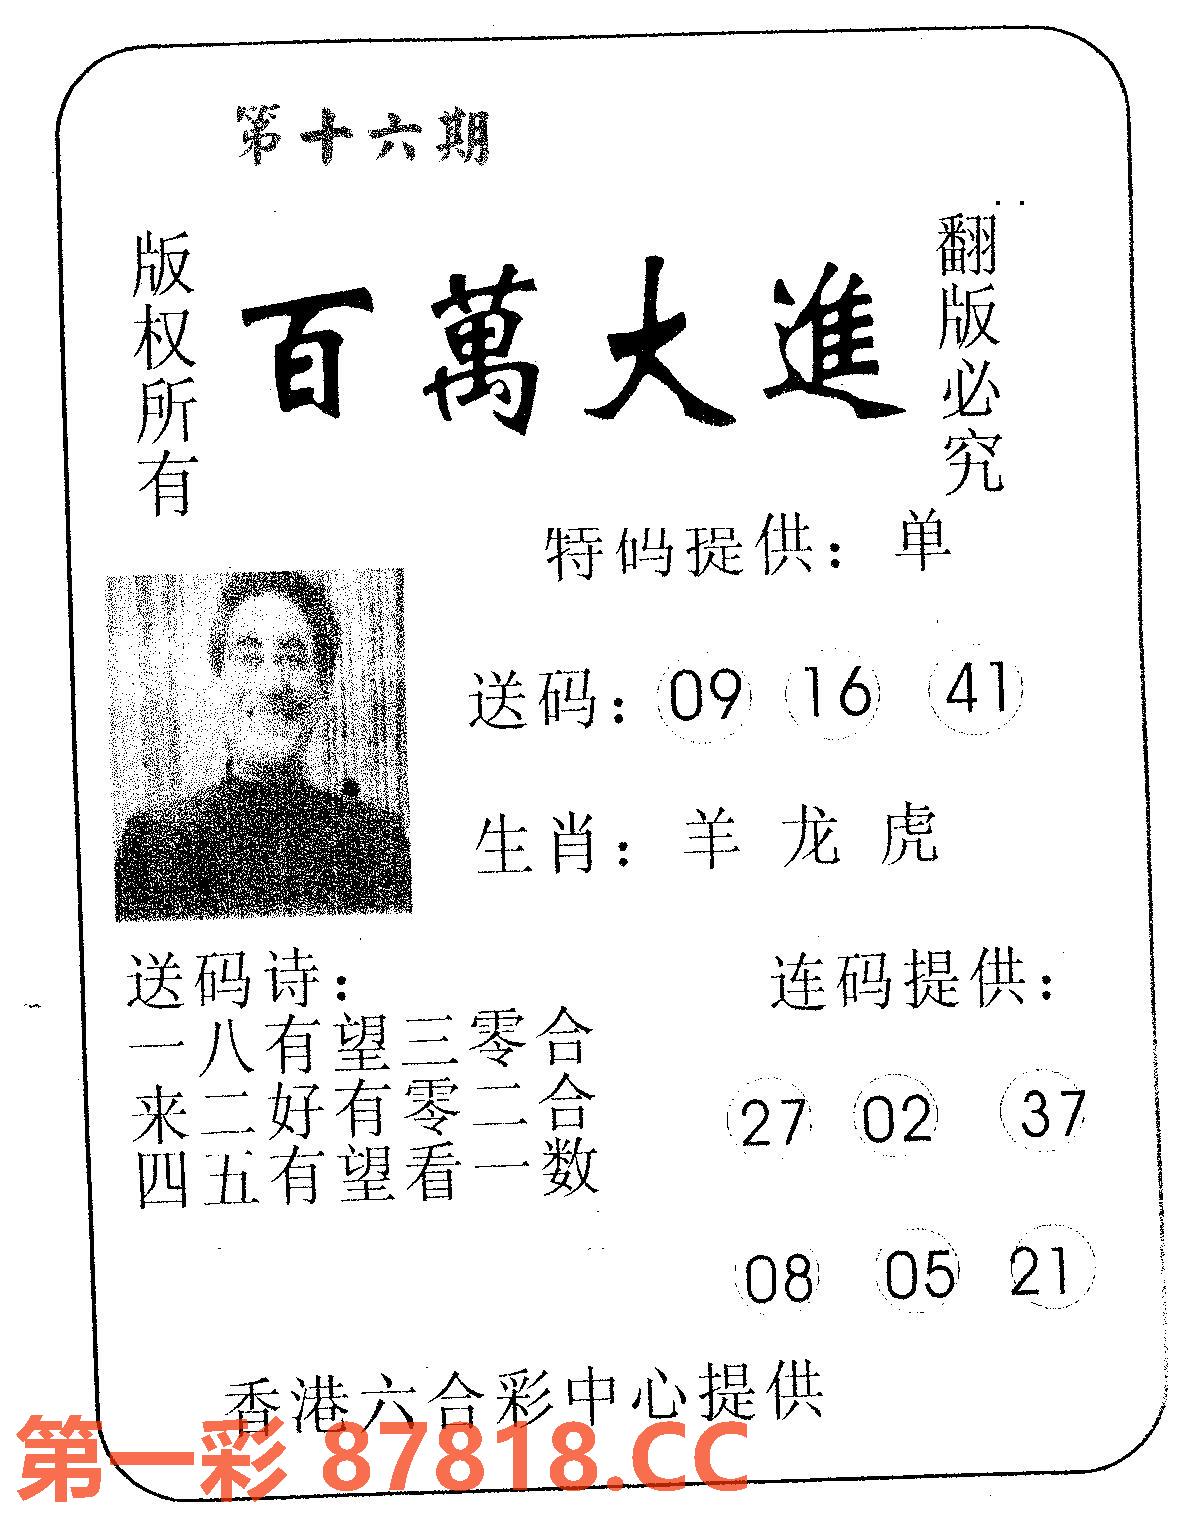 第十六期
版权所有
百萬大進
翻版必究
特码提供：单
送码：09 16 41
生肖：羊 龙 虎
送码诗：
一八有望三零合
来二好有零二合
四五有望看一数
连码提供：
27 02 37
08 05 21
香港六合彩中心提供
第一彩 87818.CC